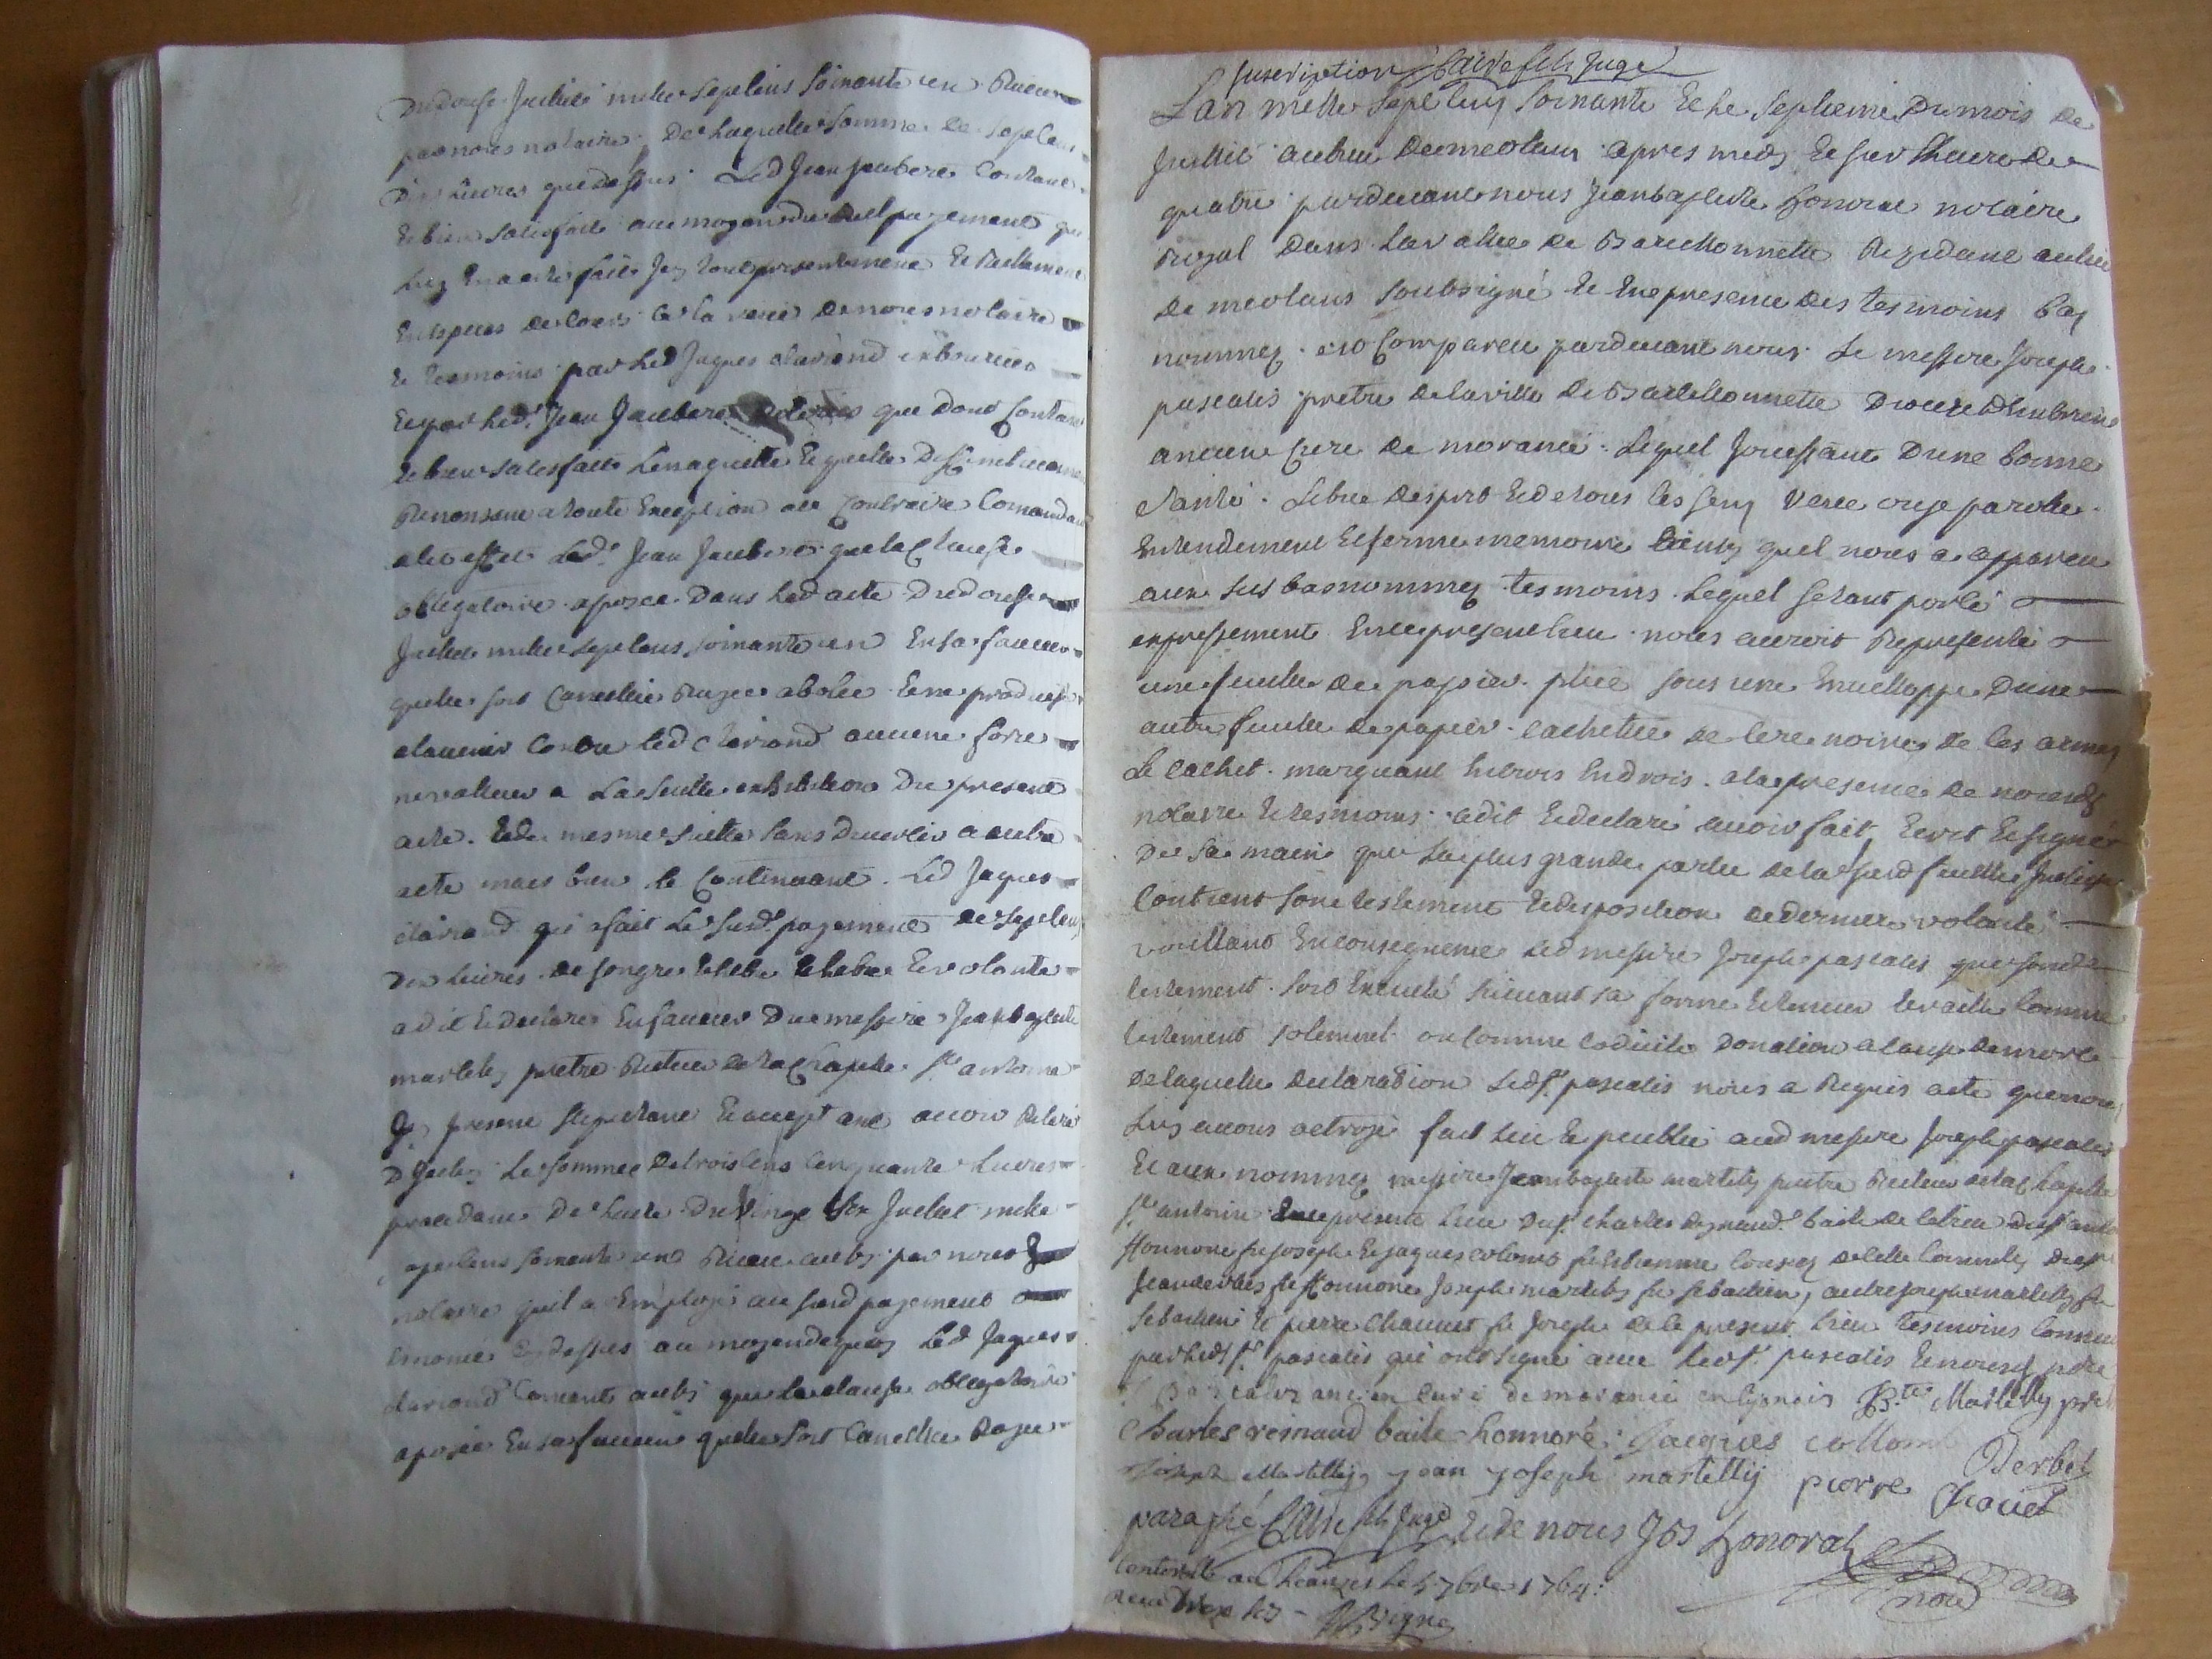 Du douse Juillet mille sept cens soixante un Receu
par nous notaire. De laquelle somme de sept cens
Dix livres que dessus Led Jean Jaubert Contant
et bien satisfait au moyen du payement que
Luy en a esté fait Icy tout presentement et reellement
En espèces de cours et la veue de nous notaire
Et tesmoins par led Jaques clariond
Et par led. Jean Jaubert que dont Contant
et bien satisfait Len a quitté et quitte
Renonsant a toute Exception au Contraire Consandant
a cet effet Led. Jean Jaubert que la clause
obligatoire aposée Dans led acte Du douse
Juillet mille sept cens soixante un En sa faveur
quelle soit Cancellée Rayée abolie et ne produise
a lavenir Contre led clariond aucune force
ny valleur a La seulle exhibition Du present
acte. Et de mesme suitte sans divertir a autre
acte mais bien le Continuant. Led Jaques
clariond qui a fait Le susd. payement de sept cens
Dix livres de son gré et libre volonté
a dit et declaré En faveur Du messire Jean baptiste
martely pretre Recteur de la chapelle St antoine
Icy present stipulant et acceptant avoir Retiré
Dyceluy La somme de trois cens cinquante Livres
procedant De Lacte Du vingt six Juillet mille
sept cens soixante un Receu aussy par nous
notaire quil a Employé au susd payement
Enoncé Cy dessus au moyen de quoy Led Jaques
clariond Consent aussy que la clause obligatoire
aposée En sa faveur quelle soit Cancellée Rayée
Suscription Caire fils Juge
Lan mille sept cens soixante et le septieme Du mois de
Juillet au lieu De meolans apres midy Et sur Lheure de
quatre pardevant nous Jean baptiste Honorat notaire
Royal Dans La vallée de Barcellonnette Rezidant au lieu
De meolans soubsigné et En presence des tesmoins bas
nommez est Comparu pardevant nous Le messire Joseph
pascalis pretre de la ville de Barcellonnette Diocese d'Embrun
ancien Curé de morancé. Lequel Jouissant Dune bonne
santé. Libre desprit et de tous les sens veue ouye parolle
Entendement Et ferme memoire ainsy quil nous a apparu
aux sus bas nommez tesmoins. Lequel sestant porté
expressement En ce present lieu nous auroit Representé
une feuille de papier pliée sous une Enveloppe Dune
autre feuille de papier cachettée de cire noire de ses armes
Le cachet marquant En trois Endrois. a la presence de nousd
notaire et tesmoins a dit et declaré avoir fait Ecrit et signé
De sa main que La plus grande partie de la susd feuille
Contient son testement et disposition de derniere volonté
voullant En consequence Led messire Joseph pascalis que sond
testement soit Executé suivant sa forme et teneur et vaille Comme
testement solemnel ou comme Codicile Donation a cause de mort
De laquelle declaration Led Sr. pascalis nous a Requis acte que nous
Luy avons octroyé fait leu et publié aud messire Joseph pascalis
Et aux nommez messire Jean baptiste martely pretre Recteur de la chapelle
St antoine En ce present Lieu Du Sr. charles Reynaud baile de ce lieu
Honnoré fu Joseph Et Jaques colomb fu Etienne Consuls de cette Communauté
Jean derbes fu Honnoré Joseph martely fu sebastien, autre Joseph martelly fu
sebastien Et pierre chauvet fu Joseph de ce present Lieu tesmoins Connus
par led Sr. pascalis qui ont signé avec led Sr. pascalis Et nousd notre
J. Pascalis ancien curé de morancé en lyonnois JBte. Martelly ptre
Charles reinaud baile honnoré Jacques collomb Derbes
Joseph Martelly jean joseph martellij pierre Chauet
paraphé Caire fils Juge Et de nous JBt Honorat
no.re
Controllé au Thauzes le 5 7bre 1764
Receu - signé